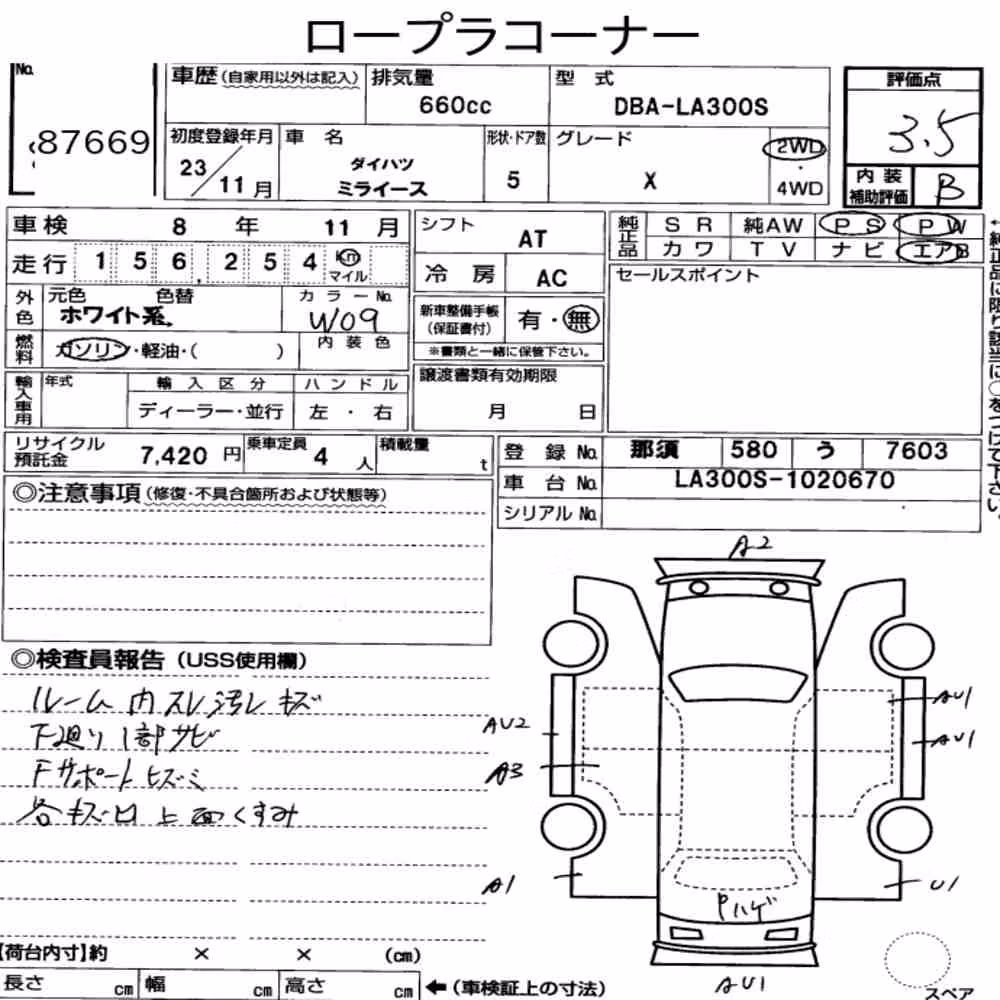 ロープラコーナー
No.
87669
車歴(自家用以外は記入)
排気量
660cc
型 式
DBA-LA300S
評価点
3.5
内装補助評価 B
初度登録年月
23/11月
車 名
ダイハツ
ミライース
形状・ドア数
5
グレード
X
2WD
・
4WD
車検 8 年 11 月
走行 156,254 Km
マイル
シフト AT
冷 房 AC
純正品
SR 純AW PS PW
カワ TV ナビ エアB
←純正品に限り該当に○をつけて下さい。
セールスポイント
外色
元色 色替
ホワイト系.
カラーNo.
W09
燃料
ガソリン・軽油・( )
内装色
新車整備手帳
(保証書付)
有・無
※書類と一緒に保管下さい。
譲渡書類有効期限
月 日
輸入車用
年式
輸入区分
ハンドル
ディーラー・並行
左・右
リサイクル
預託金
7,420 円
乗車定員
4 人
積載量
t
登 録 No. 那須 580 う 7603
車 台 No. LA300S-1020670
シリアル No.
◎注意事項(修復・不具合箇所および状態等)
◎検査員報告(USS使用欄)
ルーム内スレ汚レキズ
下廻り1部サビ
Fサポートヒズミ
各キズ凹上面くすみ
A2
AU2
A3
A1
AU1
AU1
U1
Pハゲ
AU1
スペア
【荷台内寸】約 × × (cm)
長さ cm 幅 cm 高さ cm ←(車検証上の寸法)